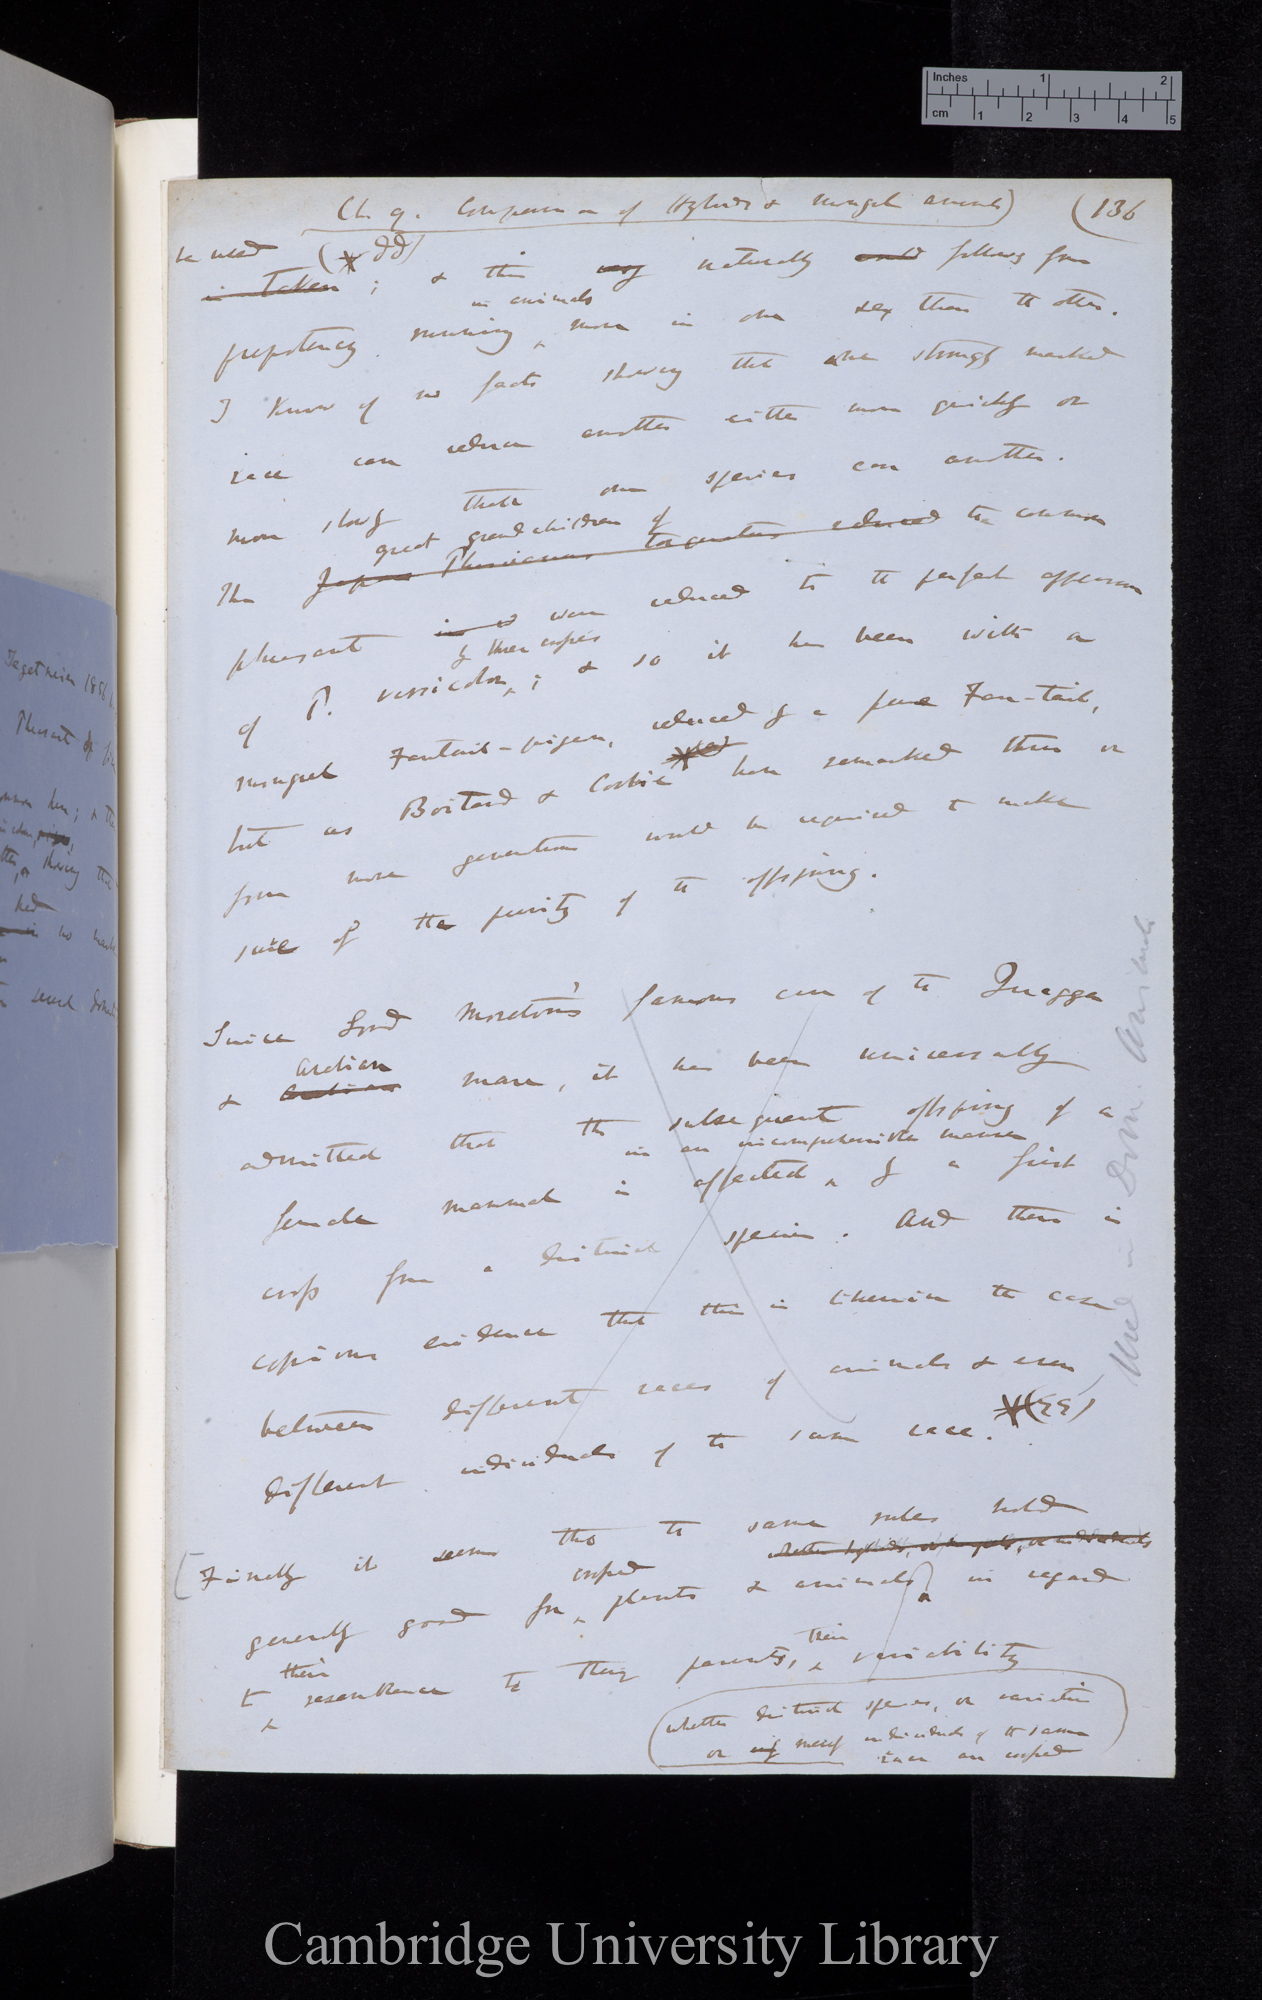 Inches 1 2
cm 1 2 3 4 5
Ch 9. Comparison of Hybrids & Mongrel animals) (136
be used (* ∂∂)
is taken ; & this may naturally could follows from
in animals
prepotency running more in one sex than the other.
I know of no facts showing that one strongly marked
race can reduce another either more quickly or
more slowly than one species can another.
great grandchildren of
The Japan Phasianus torquatus reduced the common
pheasant were reduced to the perfect appearance
by three crosses
of P. versicolor ; & so it has been with a
mongrel Fantail-pigeon, reduced by a pure Fan-tail,
but as Boitard & Corbié have remarked three or
four more generations would be required to make
sure of the purity of the offspring.
Since Lord Moreton's famous case of the Quagga
arabian
& mare, it has been universally
admitted that the subsequent offspring of a
in an incomprehensible manner
female mammal is affected by a first
cross from a distinct species. And there is
copious evidence that this is likewise the case
between different races of animals & even
different individuals of the same race. (ξξ)
Finally it seems that the same rules hold
crossed whether hybrids, or mongrels, or individuals
generally good for plants & animals in regard
their their
to resemblance to their parents, & variability
&
whether distinct species, or varieties
or merely individuals of the same
race are crossed
Used in Dom. Animals
Tegetmeier 1856
Pheasant
hen; &
showing
no
Cambridge University Library